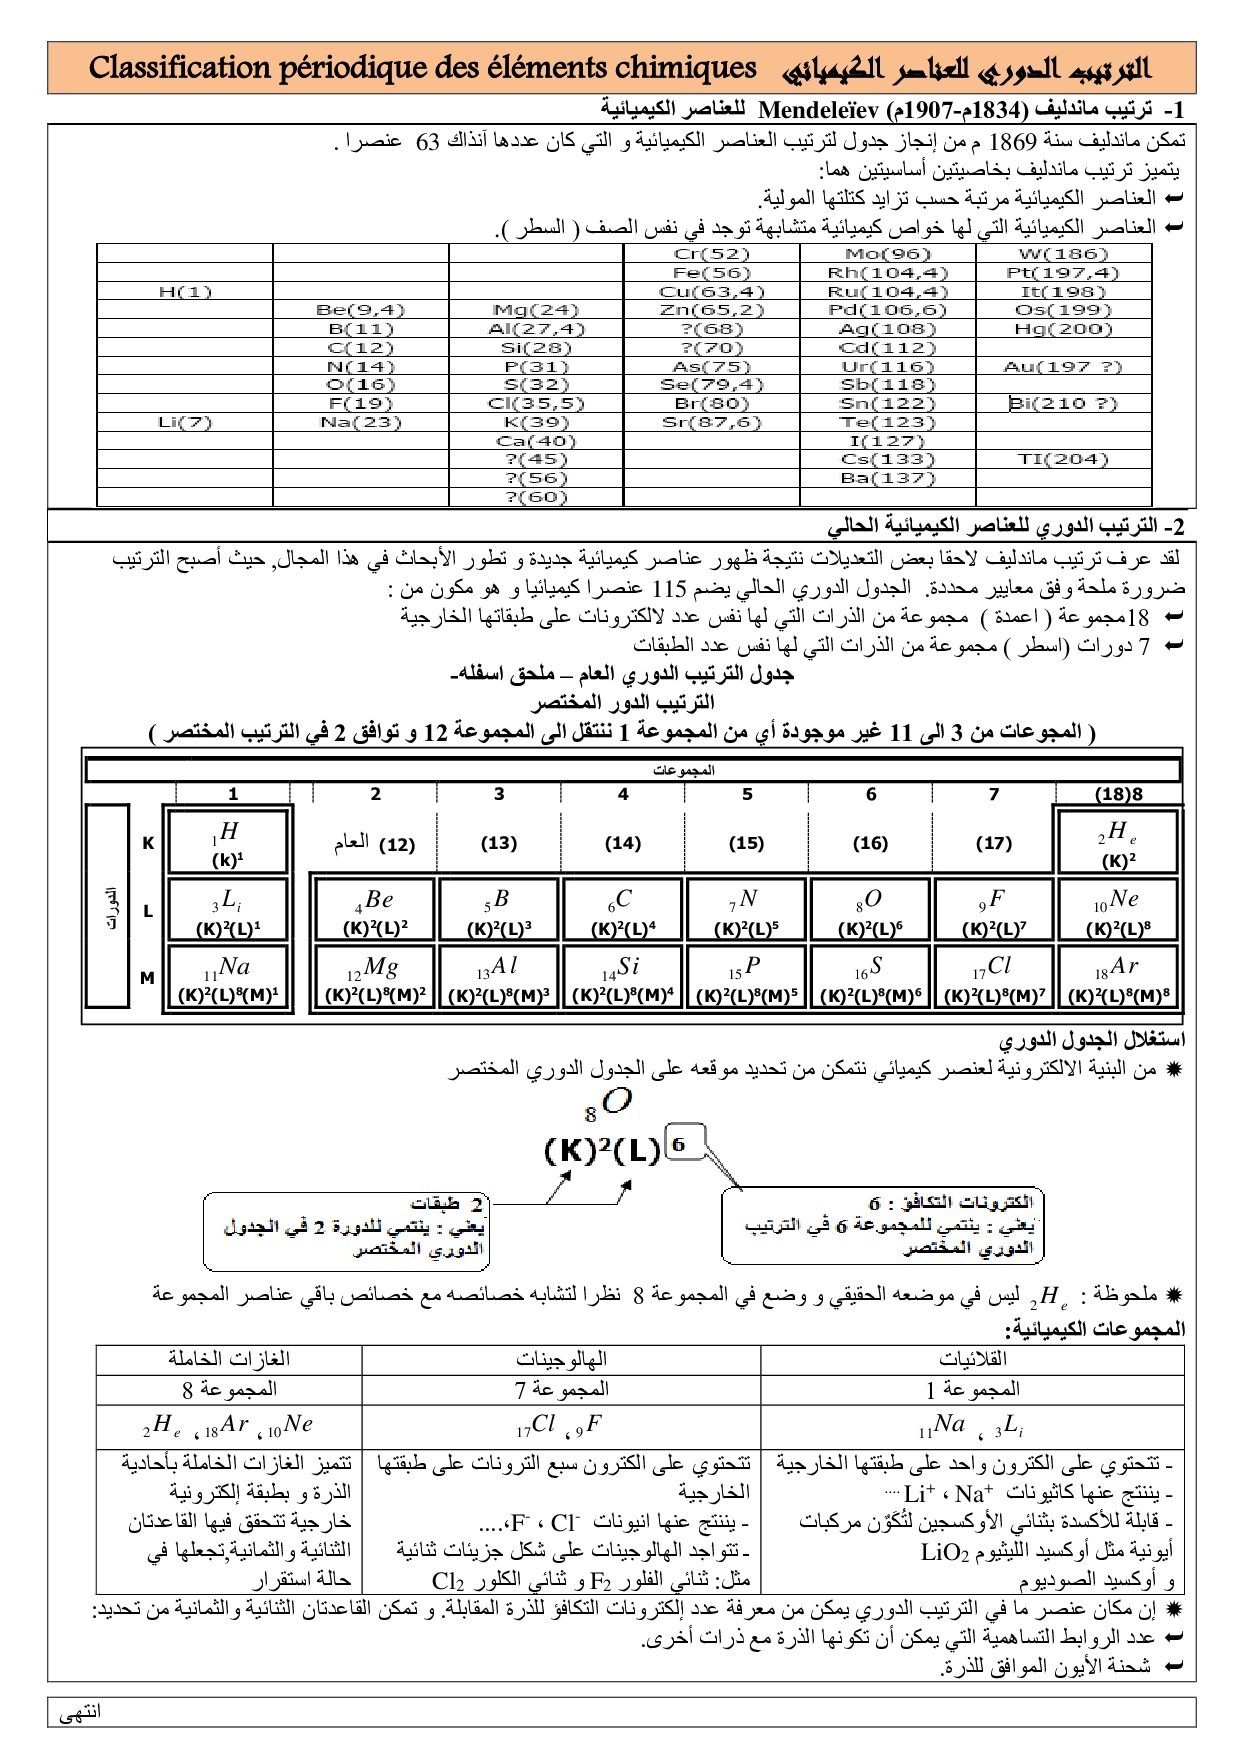 Classification périodique des éléments chimiques الترتيب الدوري للعناصر الكيميائي
1- ترتيب ماندليف (1834م-1907م) Mendeleïev للعناصر الكيميائية
تمكن ماندليف سنة 1869 م من إنجاز جدول لترتيب العناصر الكيميائية و التي كان عددها آنذاك 63 عنصرا .
يتميز ترتيب ماندليف بخاصيتين أساسيتين هما:
العناصر الكيميائية مرتبة حسب تزايد كتلتها المولية.
العناصر الكيميائية التي لها خواص كيميائية متشابهة توجد في نفس الصف ( السطر ).
Cr(52) Mo(96) W(186)
Fe(56) Rh(104,4) Pt(197,4)
H(1) Cu(63,4) Ru(104,4) It(198)
Be(9,4) Mg(24) Zn(65,2) Pd(106,6) Os(199)
B(11) Al(27,4) ?(68) Ag(108) Hg(200)
C(12) Si(28) ?(70) Cd(112)
N(14) P(31) As(75) Ur(116) Au(197 ?)
O(16) S(32) Se(79,4) Sb(118)
F(19) Cl(35,5) Br(80) Sn(122) Bi(210 ?)
Li(7) Na(23) K(39) Sr(87,6) Te(123)
Ca(40) I(127)
?(45) Cs(133) TI(204)
?(56) Ba(137)
?(60)
2- الترتيب الدوري للعناصر الكيميائية الحالي
لقد عرف ترتيب ماندليف لاحقا بعض التعديلات نتيجة ظهور عناصر كيميائية جديدة و تطور الأبحاث في هذا المجال, حيث أصبح الترتيب
ضرورة ملحة وفق معايير محددة. الجدول الدوري الحالي يضم 115 عنصرا كيميائيا و هو مكون من :
18مجموعة ( اعمدة ) مجموعة من الذرات التي لها نفس عدد لالكترونات على طبقاتها الخارجية
7 دورات (اسطر ) مجموعة من الذرات التي لها نفس عدد الطبقات
جدول الترتيب الدوري العام – ملحق اسفله-
الترتيب الدور المختصر
( المجوعات من 3 الى 11 غير موجودة أي من المجموعة 1 ننتقل الى المجموعة 12 و توافق 2 في الترتيب المختصر )
المجموعات
1 2 3 4 5 6 7 (18)8
الدورات
K ₁H العام (12) (13) (14) (15) (16) (17) ₂He
(k)¹ (K)²
L ₃Li ₄Be ₅B ₆C ₇N ₈O ₉F ₁₀Ne
(K)²(L)¹ (K)²(L)² (K)²(L)³ (K)²(L)⁴ (K)²(L)⁵ (K)²(L)⁶ (K)²(L)⁷ (K)²(L)⁸
M ₁₁Na ₁₂Mg ₁₃Al ₁₄Si ₁₅P ₁₆S ₁₇Cl ₁₈Ar
(K)²(L)⁸(M)¹ (K)²(L)⁸(M)² (K)²(L)⁸(M)³ (K)²(L)⁸(M)⁴ (K)²(L)⁸(M)⁵ (K)²(L)⁸(M)⁶ (K)²(L)⁸(M)⁷ (K)²(L)⁸(M)⁸
استغلال الجدول الدوري
من البنية الالكترونية لعنصر كيميائي نتمكن من تحديد موقعه على الجدول الدوري المختصر
₈O
(K)²(L) 6
الكترونات التكافؤ : 6
يعني : ينتمي للمجموعة 6 في الترتيب
الدوري المختصر
2 طبقات
يعني : ينتمي للدورة 2 في الجدول
الدوري المختصر
ملحوظة : ₂He ليس في موضعه الحقيقي و وضع في المجموعة 8 نظرا لتشابه خصائصه مع خصائص باقي عناصر المجموعة
المجموعات الكيميائية:
القلائيات الهالوجينات الغازات الخاملة
المجموعة 1 المجموعة 7 المجموعة 8
₃Li ، ₁₁Na ₉F ، ₁₇Cl ₁₀Ne ، ₁₈Ar ، ₂He
- تتحتوي على الكترون واحد على طبقتها الخارجية
- يننتج عنها كاثيونات Na⁺ ، Li⁺ ....
- قابلة للأكسدة بثنائي الأوكسجين لتُكَوِّن مركبات
أيونية مثل أوكسيد الليثيوم LiO₂
و أوكسيد الصوديوم
تتحتوي على الكترون سبع الترونات على طبقتها
الخارجية
- يننتج عنها انيونات Cl⁻ ، F⁻،....
- تتواجد الهالوجينات على شكل جزيئات ثنائية
مثل: ثنائي الفلور F₂ و ثنائي الكلور Cl₂
تتميز الغازات الخاملة بأحادية
الذرة و بطبقة إلكترونية
خارجية تتحقق فيها القاعدتان
الثنائية والثمانية,تجعلها في
حالة استقرار
إن مكان عنصر ما في الترتيب الدوري يمكن من معرفة عدد إلكترونات التكافؤ للذرة المقابلة. و تمكن القاعدتان الثنائية والثمانية من تحديد:
عدد الروابط التساهمية التي يمكن أن تكونها الذرة مع ذرات أخرى.
شحنة الأيون الموافق للذرة.
انتهى